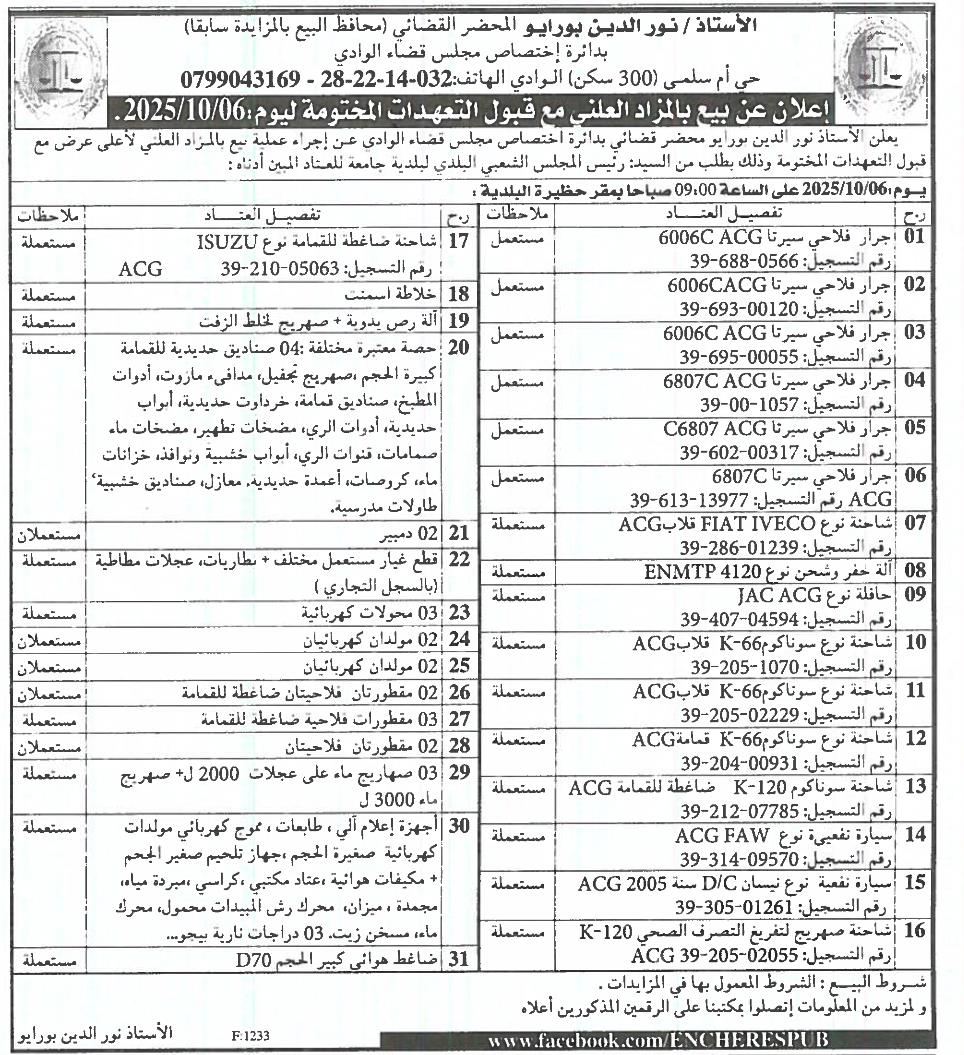 الأستاذ/ نور الدين بورايو المحضر القضائي (محافظ البيع بالمزايدة سابقا)
بدائرة إختصاص مجلس قضاء الوادي
حي أم سلمى (300 سكن) الوادي الهاتف:032-14-22-28 - 0799043169
إعلان عن بيع بالمزاد العلني مع قبول التعهدات المختومة ليوم:2025/10/06.
يعلن الأستاذ نور الدين بورايو محضر قضائي بدائرة اختصاص مجلس قضاء الوادي عن إجراء عملية بيع بالمزاد العلني لأعلى عرض مع
قبول التعهدات المختومة وذلك بطلب من السيد: رئيس المجلس الشعبي البلدي لبلدية جامعة للعتاد المبين أدناه :
يوم:2025/10/06 على الساعة 09:00 صباحا بمقر حظيرة البلدية :
ر.ح تفصيل العتاد ملاحظات
01 جرار فلاحي سيرتا 6006C ACG مستعمل
رقم التسجيل: 39-688-0566
02 جرار فلاحي سيرتا 6006CACG مستعمل
رقم التسجيل: 39-693-00120
03 جرار فلاحي سيرتا 6006C ACG مستعمل
رقم التسجيل: 39-695-00055
04 جرار فلاحي سيرتا 6807C ACG مستعمل
رقم التسجيل: 39-00-1057
05 جرار فلاحي سيرتا C6807 ACG مستعمل
رقم التسجيل: 39-602-00317
06 جرار فلاحي سيرتا 6807C مستعمل
ACG رقم التسجيل: 39-613-13977
07 شاحنة نوع FIAT IVECO قلابACG مستعملة
رقم التسجيل: 39-286-01239
08 آلة حفر وشحن نوع ENMTP 4120 مستعملة
09 حافلة نوع JAC ACG مستعملة
رقم التسجيل: 39-407-04594
10 شاحنة نوع سوناكوم K-66 قلابACG مستعملة
رقم التسجيل: 39-205-1070
11 شاحنة نوع سوناكوم K-66 قلابACG مستعملة
رقم التسجيل: 39-205-02229
12 شاحنة نوع سوناكوم K-66 قمامةACG مستعملة
رقم التسجيل: 39-204-00931
13 شاحنة سوناكوم K-120 ضاغطة للقمامة ACG مستعملة
رقم التسجيل: 39-212-07785
14 سيارة نفعيىة نوع ACG FAW مستعملة
رقم التسجيل: 39-314-09570
15 سيارة نفعية نوع نيسان D/C سنة 2005 ACG مستعملة
رقم التسجيل: 39-305-01261
16 شاحنة صهريج لتفريغ التصرف الصحي K-120 مستعملة
رقم التسجيل: 39-205-02055 ACG
ر.ح تفصيل العتاد ملاحظات
17 شاحنة ضاغطة للقمامة نوع ISUZU مستعملة
رقم التسجيل: 39-210-05063 ACG
18 خلاطة اسمنت مستعملة
19 آلة رص يدوية + صهريج لخلط الزفت مستعملة
20 حصة معتبرة مختلفة :04 صناديق حديدية للقمامة مستعملة
كبيرة الحجم ،صهريج تجفيل، مدافىء مازوت، أدوات
المطبخ، صناديق قمامة، خرداوت حديدية، أبواب
حديدية، أدوات الري، مضخات تطهير، مضخات ماء
صمامات، قنوات الري، أبواب خشبية ونوافذ، خزانات
ماء، كروصات، أعمدة حديدية، معازل، صناديق خشبية،
طاولات مدرسية.
21 02 دمبير مستعملان
22 قطع غيار مستعمل مختلف + بطاريات، عجلات مطاطية مستعملة
(بالسجل التجاري )
23 03 محولات كهربائية مستعملة
24 02 مولدان كهربائيان مستعملان
25 02 مولدان كهربائيان مستعملان
26 02 مقطورتان فلاحيتان ضاغطة للقمامة مستعملان
27 03 مقطورات فلاحية ضاغطة للقمامة مستعملة
28 02 مقطورتان فلاحيتان مستعملان
29 03 صهاريج ماء على عجلات 2000 ل+ صهريج مستعملة
ماء 3000 ل
30 أجهزة إعلام آلي ، طابعات ، مموج كهربائي مولدات مستعملة
كهربائية صغيرة الحجم ،جهاز تلحيم صغير الحجم
+ مكيفات هوائية ،عتاد مكتبي ،كراسي ،مبردة مياه،
مجمدة ، ميزان، محرك رش المبيدات محمول، محرك
ماء، مسخن زيت. 03 دراجات نارية بيجو...
31 ضاغط هوائي كبير الحجم D70 مستعملة
شروط البيع : الشروط المعمول بها في المزايدات .
و لمزيد من المعلومات إتصلوا بمكتبنا على الرقمين المذكورين أعلاه
www.facebook.com/ENCHERESPUB F:1233 الأستاذ نور الدين بورايو